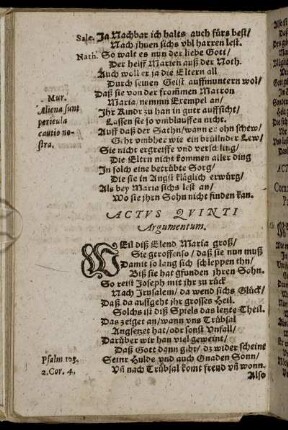 Sale. Ja Nachbar ich halts auch fürs best/
Nach jhnen sichs vbl harren lest.
Nath. So walt es nun der liebe Gott/
Der helff Marien auß der Noth.
Auch woll er ja die Eltern all
Durch seinen Geist auffmuntern wol/
Daß sie von der frommen Matron
Maria/ nemmn Exempel an/
Mur.
Aliena sunt
pericula
cautio no-
stra.
Ihr Kindr zu han in guter auffsicht/
Lassen sie so vmblauffen nicht.
Auff daß der Sathn/ wann er ohn schew/
Geht vmbher wie ein brüllnder Lew/
Sie nicht ergreiffe vnd verschling/
Die Eltrn nicht kommen aller ding
In solch eine betrübte Sorg/
Die sie in Angst kläglich erwürg/
Als bey Maria sichs lest an/
Wo sie jhrn Sohn nicht finden kan.
ACTVS QVINTI
Argumentum.
WEil diß Elend Maria groß/
Sie geroffen so/ daß sie nun muß
Damit so lang sich schleppen thn/
Biß sie hat gfunden jhren Sohn.
So reist Joseph mit jhr zu rück
Nach Jrusalem/ da wend sichs Glück/
Daß da auffgeht jhr grosses Heil.
Solchs ist diß Spiels das letzte Theil.
Das zeiget an/ wann vns Trübsal
Angsetzet hat/ odr sonst Vnfall/
Darüber wir han viel geweint/
Psalm 125.
2. Cor. 4.
Daß Gott dann gibt/ dz wider scheint
Seinr Hulde vnd auch Gnaden Sonn/
Vñ nach Trübsal komt freud vñ wonn.
Also